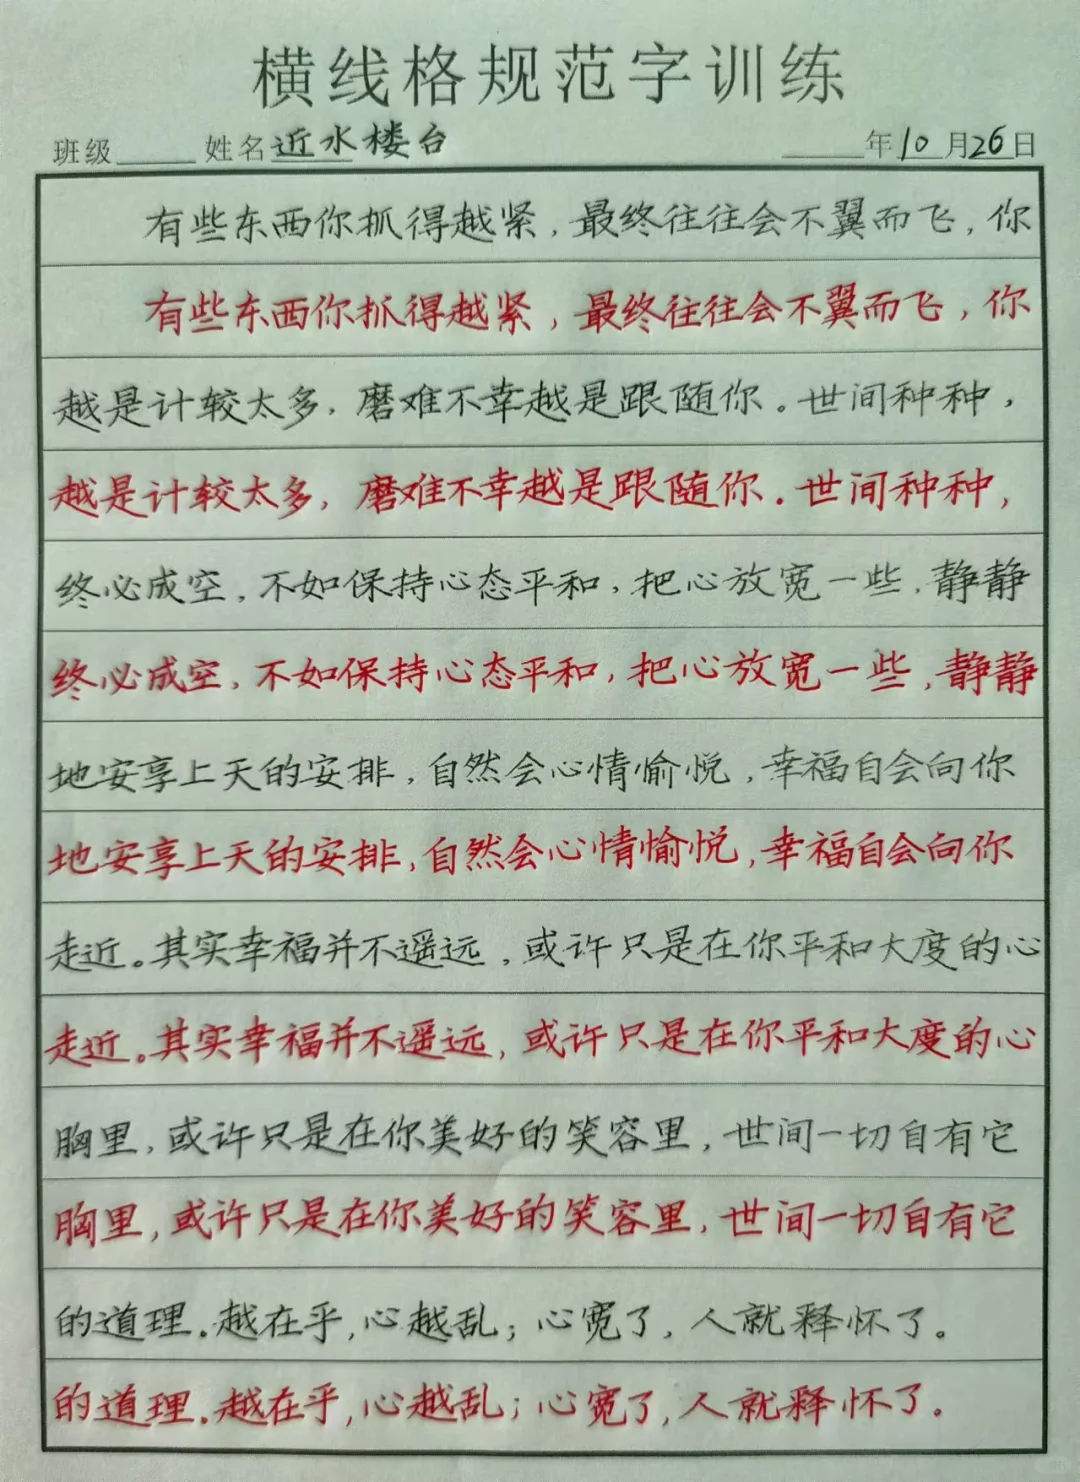 横线格规范字训练
班级 姓名 近水楼台 年10月26日
有些东西你抓得越紧,最终往往会不翼而飞,你
有些东西你抓得越紧,最终往往会不翼而飞,你
越是计较太多,磨难不幸越是跟随你。世间种种,
越是计较太多,磨难不幸越是跟随你。世间种种,
终必成空,不如保持心态平和,把心放宽一些,静静
终必成空,不如保持心态平和,把心放宽一些,静静
地安享上天的安排,自然会心情愉悦,幸福自会向你
地安享上天的安排,自然会心情愉悦,幸福自会向你
走近。其实幸福并不遥远,或许只是在你平和大度的心
走近。其实幸福并不遥远,或许只是在你平和大度的心
胸里,或许只是在你美好的笑容里,世间一切自有它
胸里,或许只是在你美好的笑容里,世间一切自有它
的道理。越在乎,心越乱;心宽了,人就释怀了。
的道理。越在乎,心越乱;心宽了,人就释怀了。